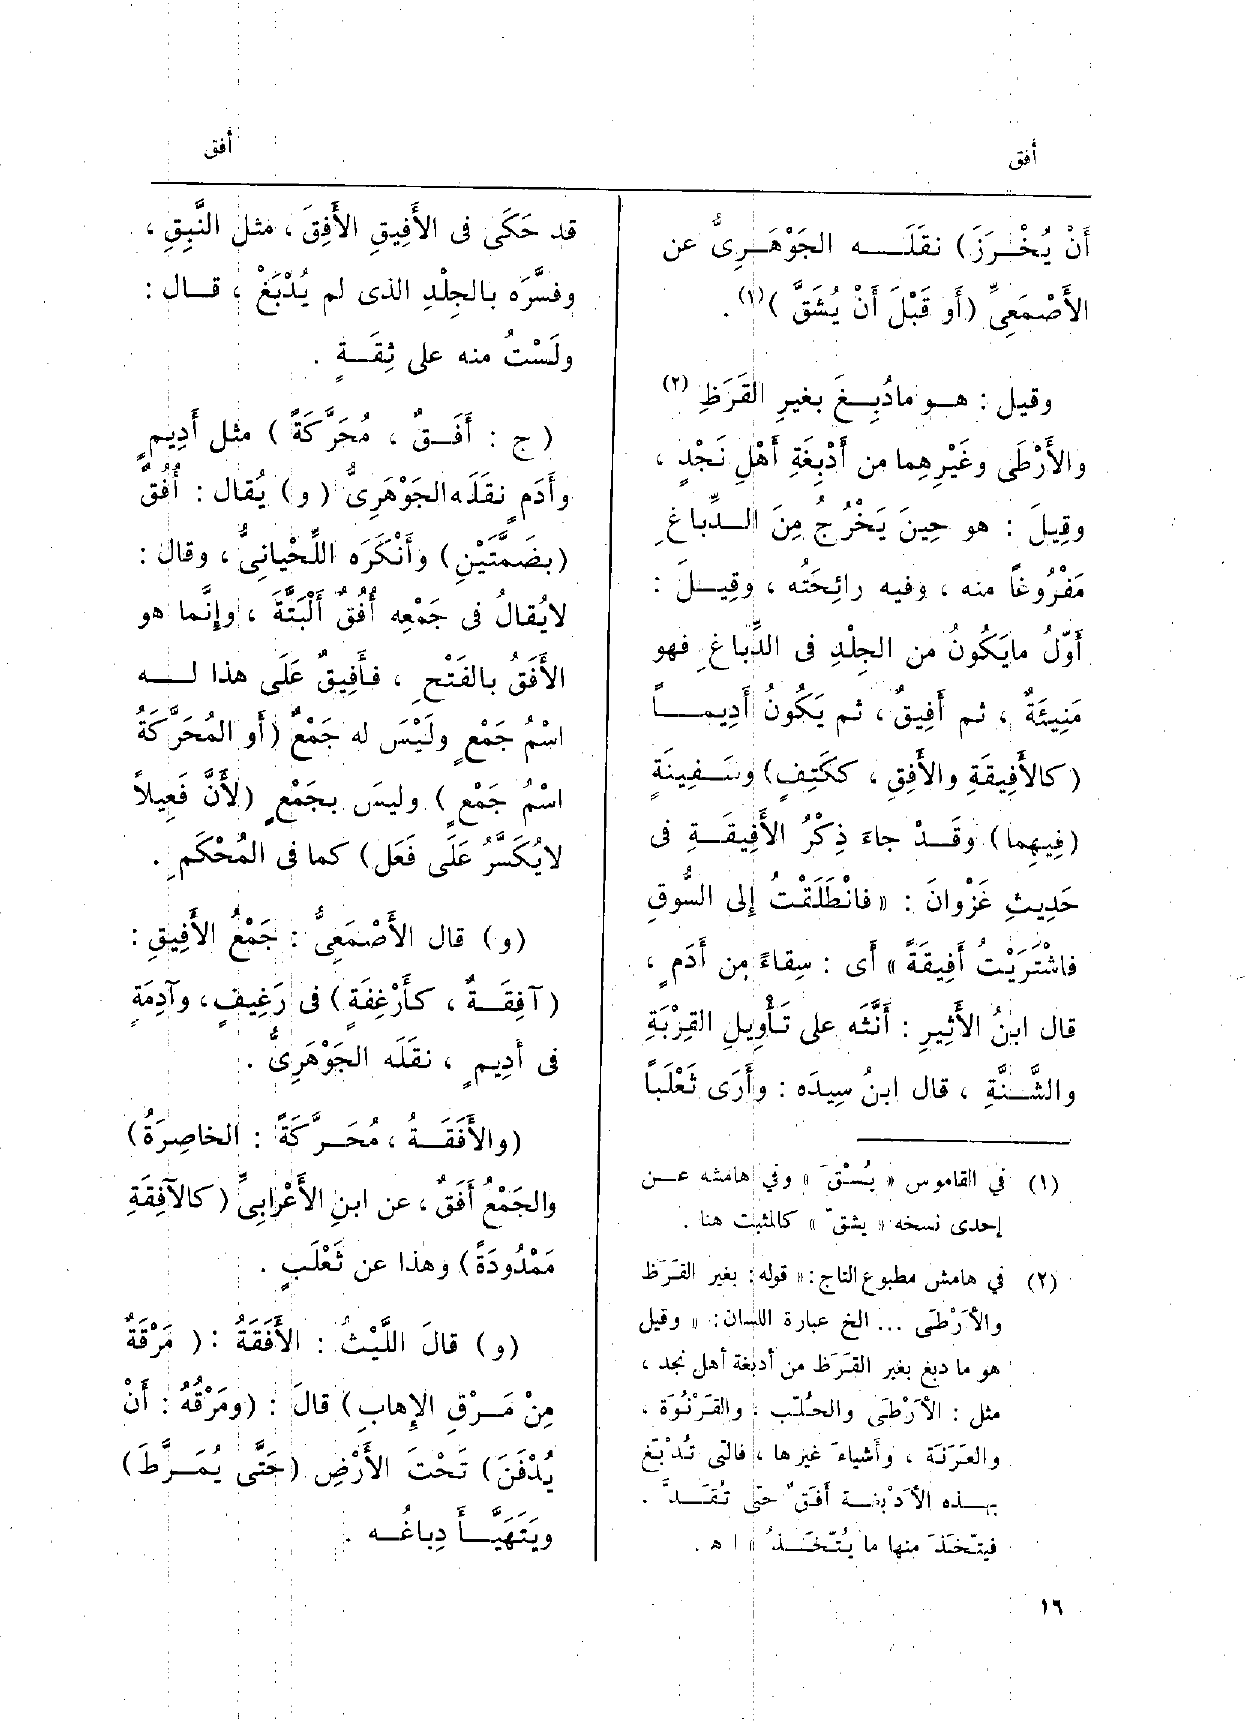 أفق
أفق
أَنْ يُخْرَزَ) نقَلَه الجَوْهَرِىُّ عن
الأَصْمَعِىِّ (أو قَبْلَ أَنْ يُشَقَّ)(١) .
وقيل : هو مادُبِغَ بغيرِ القَرَظِ (٢)
والأَرْطَى وغَيْرِهِما من أَدْبِغَةِ أَهْلِ نَجْدٍ ،
وقِيلَ : هو حِينَ يَخْرُجُ مِنَ الدِّباغِ
مَفْرُوغاً منه ، وفيه رائِحَتُه ، وقِيلَ :
أَوّلُ مايَكُونُ من الجِلْدِ فى الدِّباغِ فهو
مَنِيئَةٌ ، ثم أَفِيقٌ ، ثم يَكُونُ أَدِيماً
(كالأَفِيقَةِ والأَفِقِ ، ككَتِفٍ) وسَفِينَةٍ
(فِيهِما) وقَدْ جاءَ ذِكْرُ الأَفِيقَةِ فى
حَدِيثِ غَزْوانَ : « فانْطَلَقْتُ إلى السُّوقِ
فاشْتَرَيْتُ أَفِيقَةً » أى : سِقاءً مِن أَدَمٍ ،
قال ابنُ الأَثِيرِ : أَنَّثَه على تَأْوِيلِ القِرْبَةِ
والشَّنَّةِ ، قال ابنُ سِيدَه : وأُرَى ثَعْلَباً
(١) في القاموس « يُسْقَ » وفي هامشه عن
إحدى نسخه « يشق » كالمثبت هنا .
(٢) في هامش مطبوع التاج : « قوله : بغير القَرَظ
والأَرْطَى ... الخ عبارة اللسان : « وقيل
هو ما دبغ بغير القَرَظ من أدبغة أهل نجد ،
مثل : الأَرْطَى والحُلَّب ، والقَرْنُوَة ،
والعَرَنَة ، وأشياءَ غيرها ، فالتى تُدْبَغ
بهذه الأَدْبغة أَفَقٌ حتى تُقَدَّ .
فيتّخذَ منها ما يُتّخَذُ » ا ه .
قد حَكَى فى الأَفِيقِ الأَفِقَ ، مثل النَّبِقِ ،
وفسَّرَه بالجِلْدِ الذى لم يُدْبَغْ ، قال :
ولَسْتُ منه على ثِقَةٍ .
(ج : أَفَقٌ ، مُحَرَّكَةً) مثل أَدِيمٍ
وأَدَمٍ نقَلَه الجَوْهَرِىُّ (و) يُقال : أُفُقٌ
(بضَمَّتَيْنِ) وأَنْكَرَه اللِّحْيانِىُّ ، وقال :
لايُقالُ فى جَمْعِه أُفُقٌ أَلْبَتَّةَ ، وإِنَّما هو
الأَفَقُ بالفَتْحِ ، فأَفِيقٌ عَلَى هذا له
اسْمُ جَمْعٍ ولَيْسَ له جَمْعٌ (أو المُحَرَّكَةُ
اسْمُ جَمْعٍ) وليسَ بجَمْعٍ (لأَنَّ فَعِيلاً
لايُكَسَّرُ عَلَى فَعَلٍ) كما فى المُحْكَمِ .
(و) قال الأَصْمَعِىُّ : جَمْعُ الأَفِيقِ :
(آفِقَةٌ ، كأَرْغِفَةٍ) فى رَغِيفٍ ، وآدِمَةٍ
فى أَدِيمٍ ، نقَلَه الجَوْهَرِىُّ .
(والأَفَقَةُ ، مُحَرَّكَةً : الخاصِرَةُ)
والجَمْعُ أَفَقٌ ، عن ابنِ الأَعْرابِىِّ (كالآفِقَةِ
مَمْدُودَةً) وهذا عن ثَعْلَبٍ .
(و) قالَ اللَّيْثُ : الأَفَقَةُ : ( مَرْقَةٌ
مِنْ مَرْقِ الإِهابِ) قالَ : (ومَرْقُهُ : أَنْ
يُدْفَنَ) تَحْتَ الأَرْضِ (حَتَّى يُمَرَّطَ)
ويَتَهَيَّأَ دِباغُه .
١٦